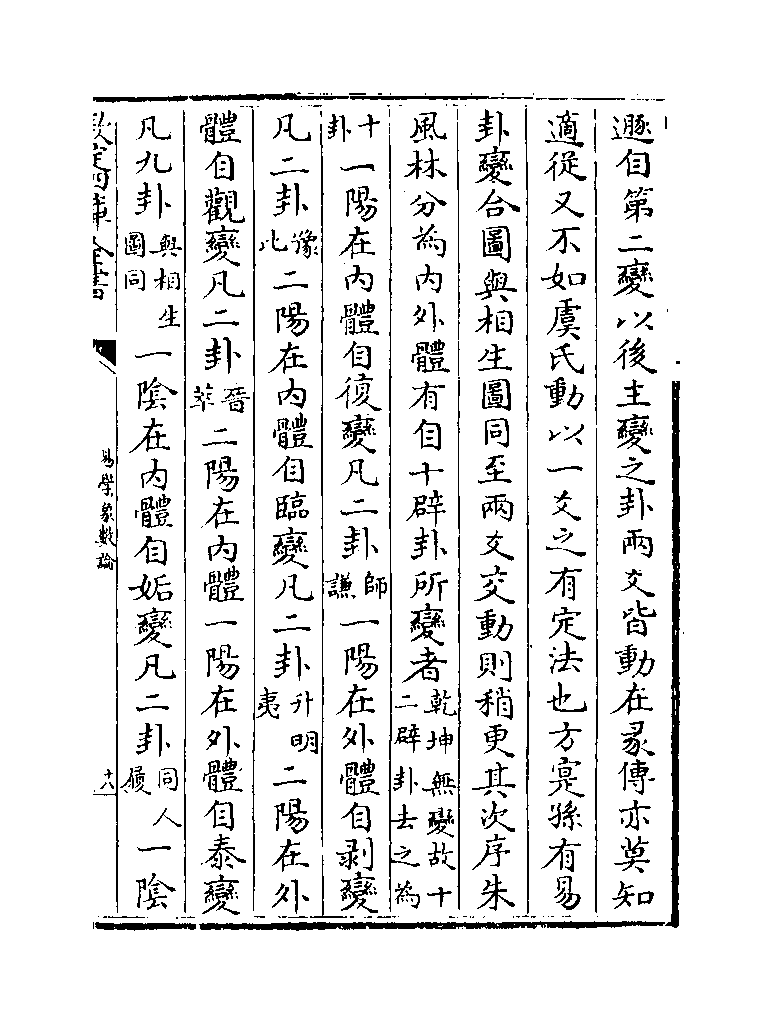 遯自第二變以後主變之卦兩爻皆動在彖傳亦莫知
適從又不如虞氏動以一爻之有定法也方寔孫有易
卦變合圖與相生圖同至兩爻交動則稍更其次序朱
風林分為内外體有自十辟卦所變者乾坤無變故十二辟卦去之為
十卦一陽在内體自復變凡二卦師謙一陽在外體自剥變
凡二卦豫比二陽在内體自臨變凡二卦升明夷二陽在外
體自觀變凡二卦晉萃二陽在内體一陽在外體自泰變
凡九卦與相生圖同一陰在内體自姤變凡二卦同人履一陰
欽定四庫全書
易學象數論
十八